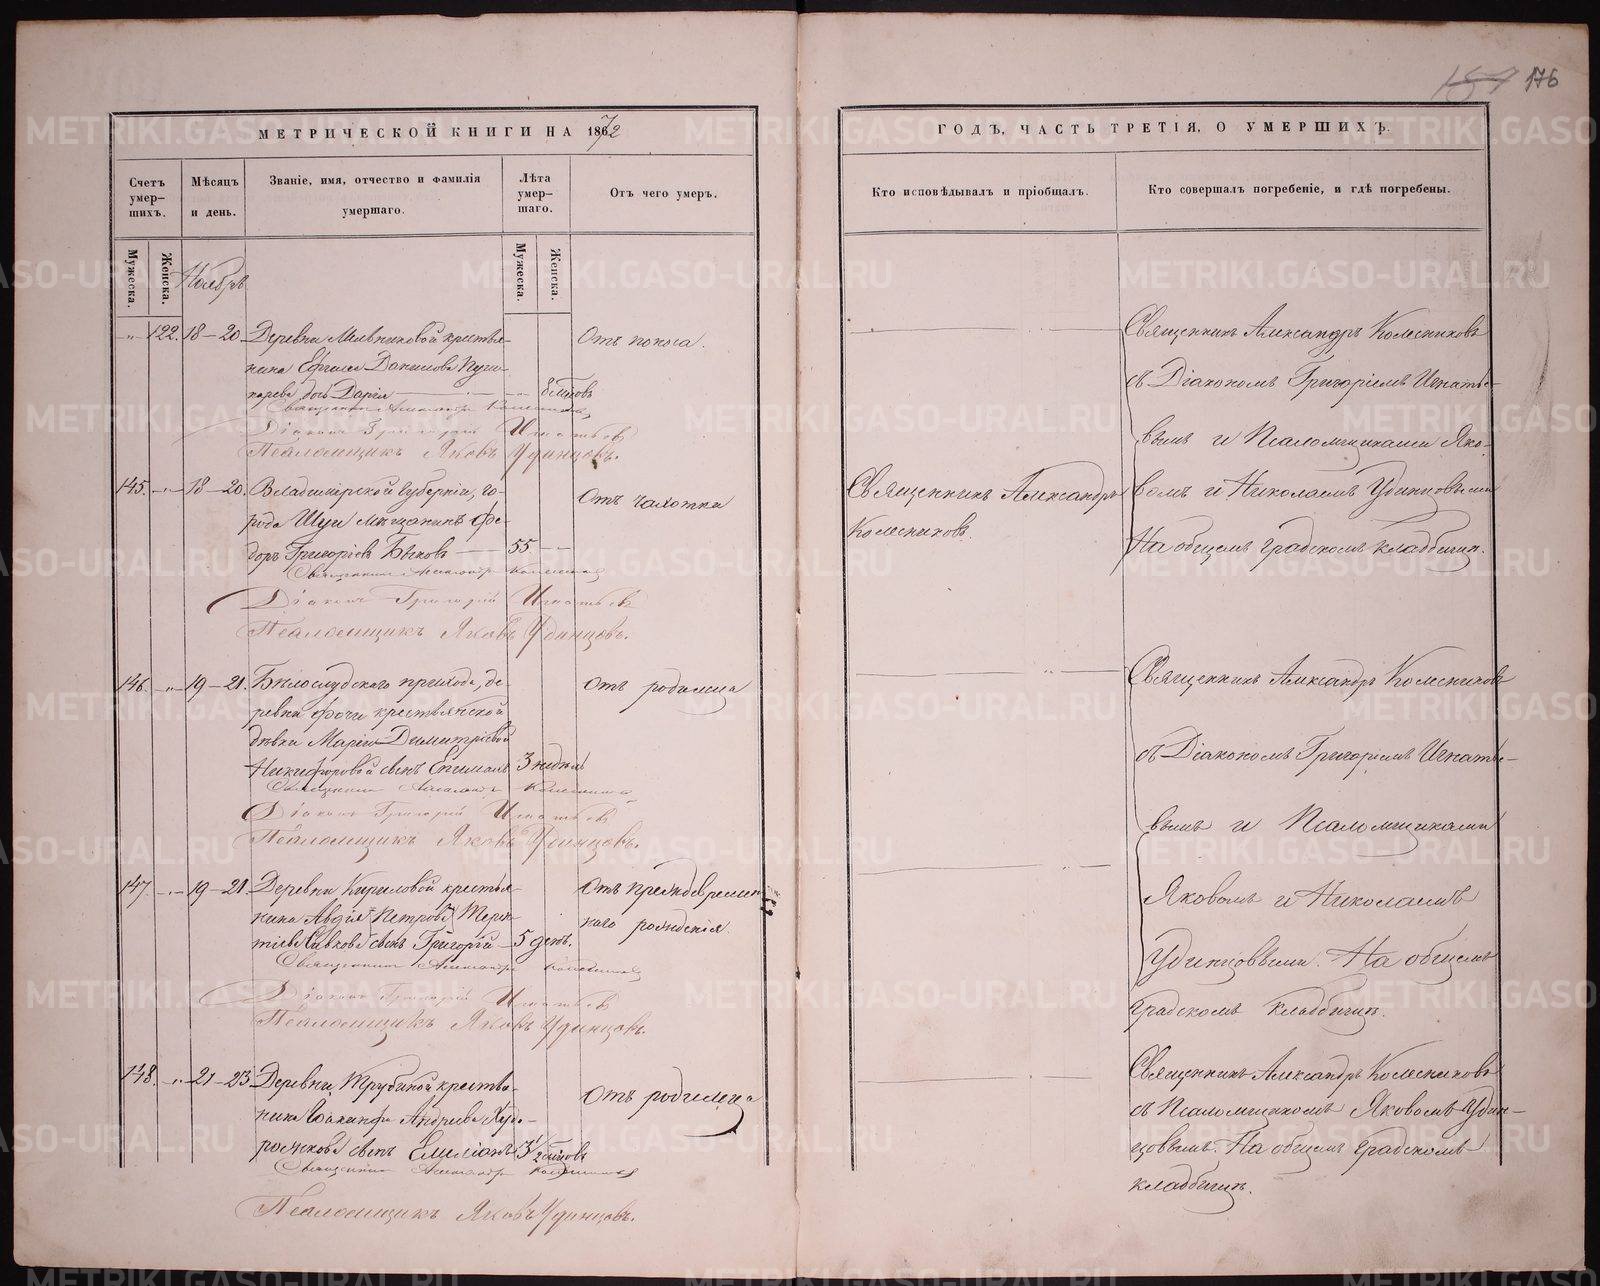 157 176
МЕТРИЧЕСКОЙ КНИГИ НА 1872
ГОДЪ, ЧАСТЬ ТРЕТІЯ, О УМЕРШИХЪ.
Счетъ умер-шихъ.
Мѣсяцъ и день.
Званіе, имя, отчество и фамилія умершаго.
Лѣта умер-шаго.
Отъ чего умеръ.
Кто исповѣдывалъ и пріобщалъ.
Кто совершалъ погребеніе, и гдѣ погребены.
Мужеска.
Женска.
Мужеска.
Женска.
Ноябрь
122. 18–20. Деревни Мельниковой крестья-
нина Данилова
дочь Дарія
Отъ поноса.
Священникъ Александръ Колесниковъ
Діаконъ Григорій Игнатьевъ
Псаломщикъ Яковъ Удинцовъ.
Священникъ Александръ Колесниковъ
съ Діакономъ Григоріемъ Игнатье-
вымъ и Псаломщиками Яко-
вомъ и Николаемъ Удинцовыми
На общемъ градскомъ кладбищѣ.
145. 18–20. Владимірской губерніи, го-
рода Шуи мѣщанинъ Ѳе-
доръ Григорьевъ Быковъ 55
Отъ чахотки
Священникъ Александръ
Колесниковъ.
Священникъ Александръ Колесниковъ
Діаконъ Григорій Игнатьевъ
Псаломщикъ Яковъ Удинцовъ.
146. 19–21. Бѣлослудскаго прихода, де-
ревни Фочи крестьянской
дѣвки Маріи Димитріевой
Никифоровой сынъ 3 недѣль
Отъ родимца
Священникъ Александръ Колесниковъ
Діаконъ Григорій Игнатьевъ
Псаломщикъ Яковъ Удинцовъ.
Священникъ Александръ Колесниковъ
съ Діакономъ Григоріемъ Игнатье-
вымъ и Псаломщиками
Яковомъ и Николаемъ
Удинцовыми. На общемъ
градскомъ кладбищѣ.
147. 19–21. Деревни Кириловой крестья-
нина Авдія Петрова
сынъ Григорій 5 день.
Отъ преждевремен-
наго рожденія.
Священникъ Александръ Колесниковъ
Діаконъ Григорій Игнатьевъ
Псаломщикъ Яковъ Удинцовъ.
148. 21–23 Деревни Трубиной крестья-
нина Андреева Худо-
рожкова сынъ Емиліанъ
Отъ родимца
Священникъ Александръ Колесниковъ
Псаломщикъ Яковъ Удинцовъ.
Священникъ Александръ Колесниковъ
съ Псаломщикомъ Яковомъ Удин-
цовымъ. На общемъ градскомъ
кладбищѣ.
METRIKI.GASO-URAL.RU